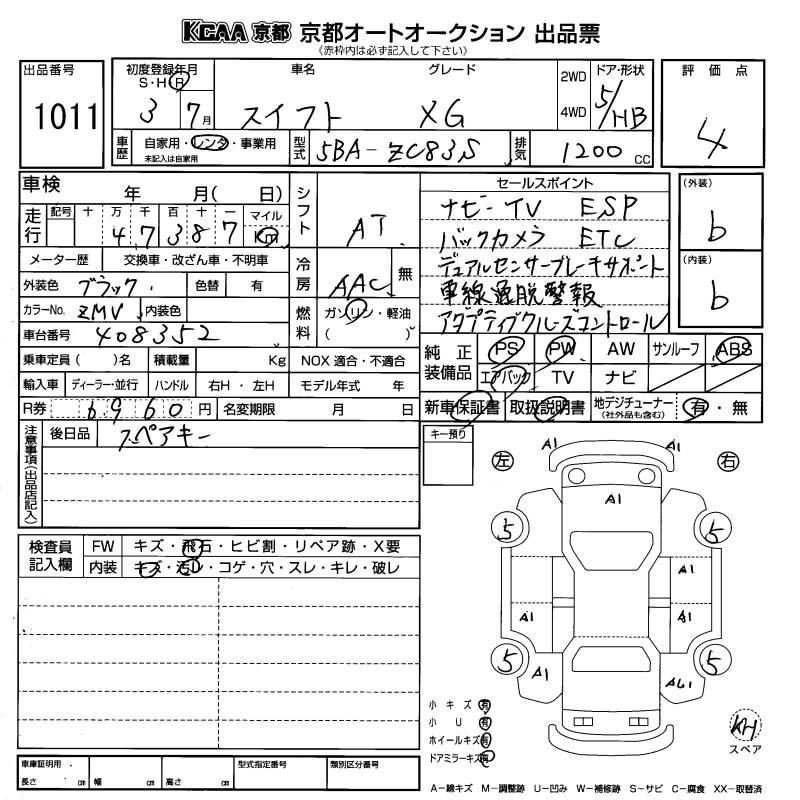 KCAA 京都 京都オートオークション 出品票
(赤枠内は必ず記入して下さい)
出品番号
1011
初度登録年月
S・H・R
3 7月
車名
スイフト
グレード
XG
2WD
4WD
ドア・形状
5/HB
評価点
4
車歴
自家用・レンタ・事業用
未記入は自家用
型式
5BA-ZC83S
排気
1200 CC
車検 年 月( 日)
走行
記号 十 万 千 百 十 一 マイル
4 7 3 8 7 Km
メーター歴 交換車・改ざん車・不明車
外装色 ブラック 色替 有
カラーNo. ZMV 内装色
車台番号 408352
乗車定員( )名 積載量 Kg
輸入車 ディーラー・並行 ハンドル 右H・左H
R券 6960円 名変期限 月 日
シフト
AT
冷房
AAC 無
燃料
ガソリン・軽油
( )
NOX 適合・不適合
モデル年式 年
セールスポイント
ナビーTV ESP
バックカメラ ETC
デュアルセンサーブレーキサポート
車線逸脱警報
アダプティブクルーズコントロール
(外装)
b
(内装)
b
純正装備品
PS PW AW サンルーフ ABS
エアバック TV ナビ
新車保証書 取扱説明書 地デジチューナー(社外品も含む) 有・無
注意事項(出品店記入)
後日品 スペアキー
キー預り
検査員記入欄
FW キズ・飛石・ヒビ割・リペア跡・X要
内装 キズ・汚れ・コゲ・穴・スレ・キレ・破レ
左 右
A1 A1
A1
5 5
A1
A1 A1
5 5
A1 AU1
小キズ 有
小U 有
ホイールキズ 有
ドアミラーキズ 有
スペア
車庫証明用
長さ cm 幅 cm 高さ cm
型式指定番号
類別区分番号
A-線キズ M-調整跡 U-凹み W-補修跡 S-サビ C-腐食 XX-取替済